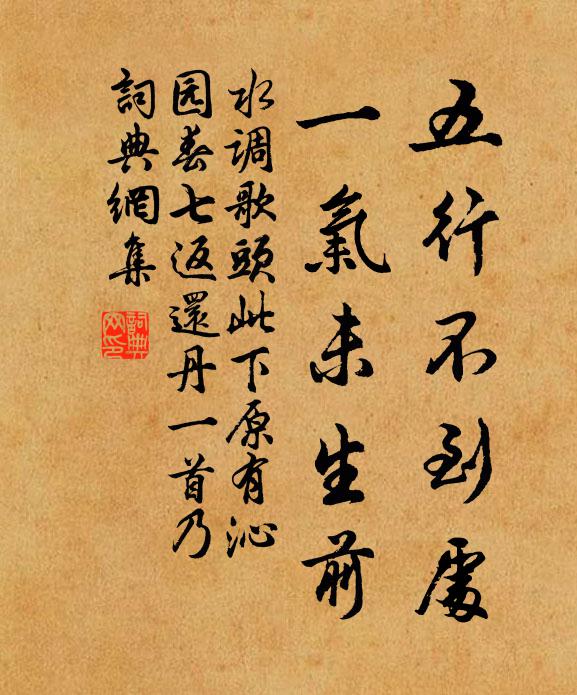 五行不到處
一氣未生前
水调歌頭此下原有沁
园春七返還丹一首乃
詞典網集
詞典网印